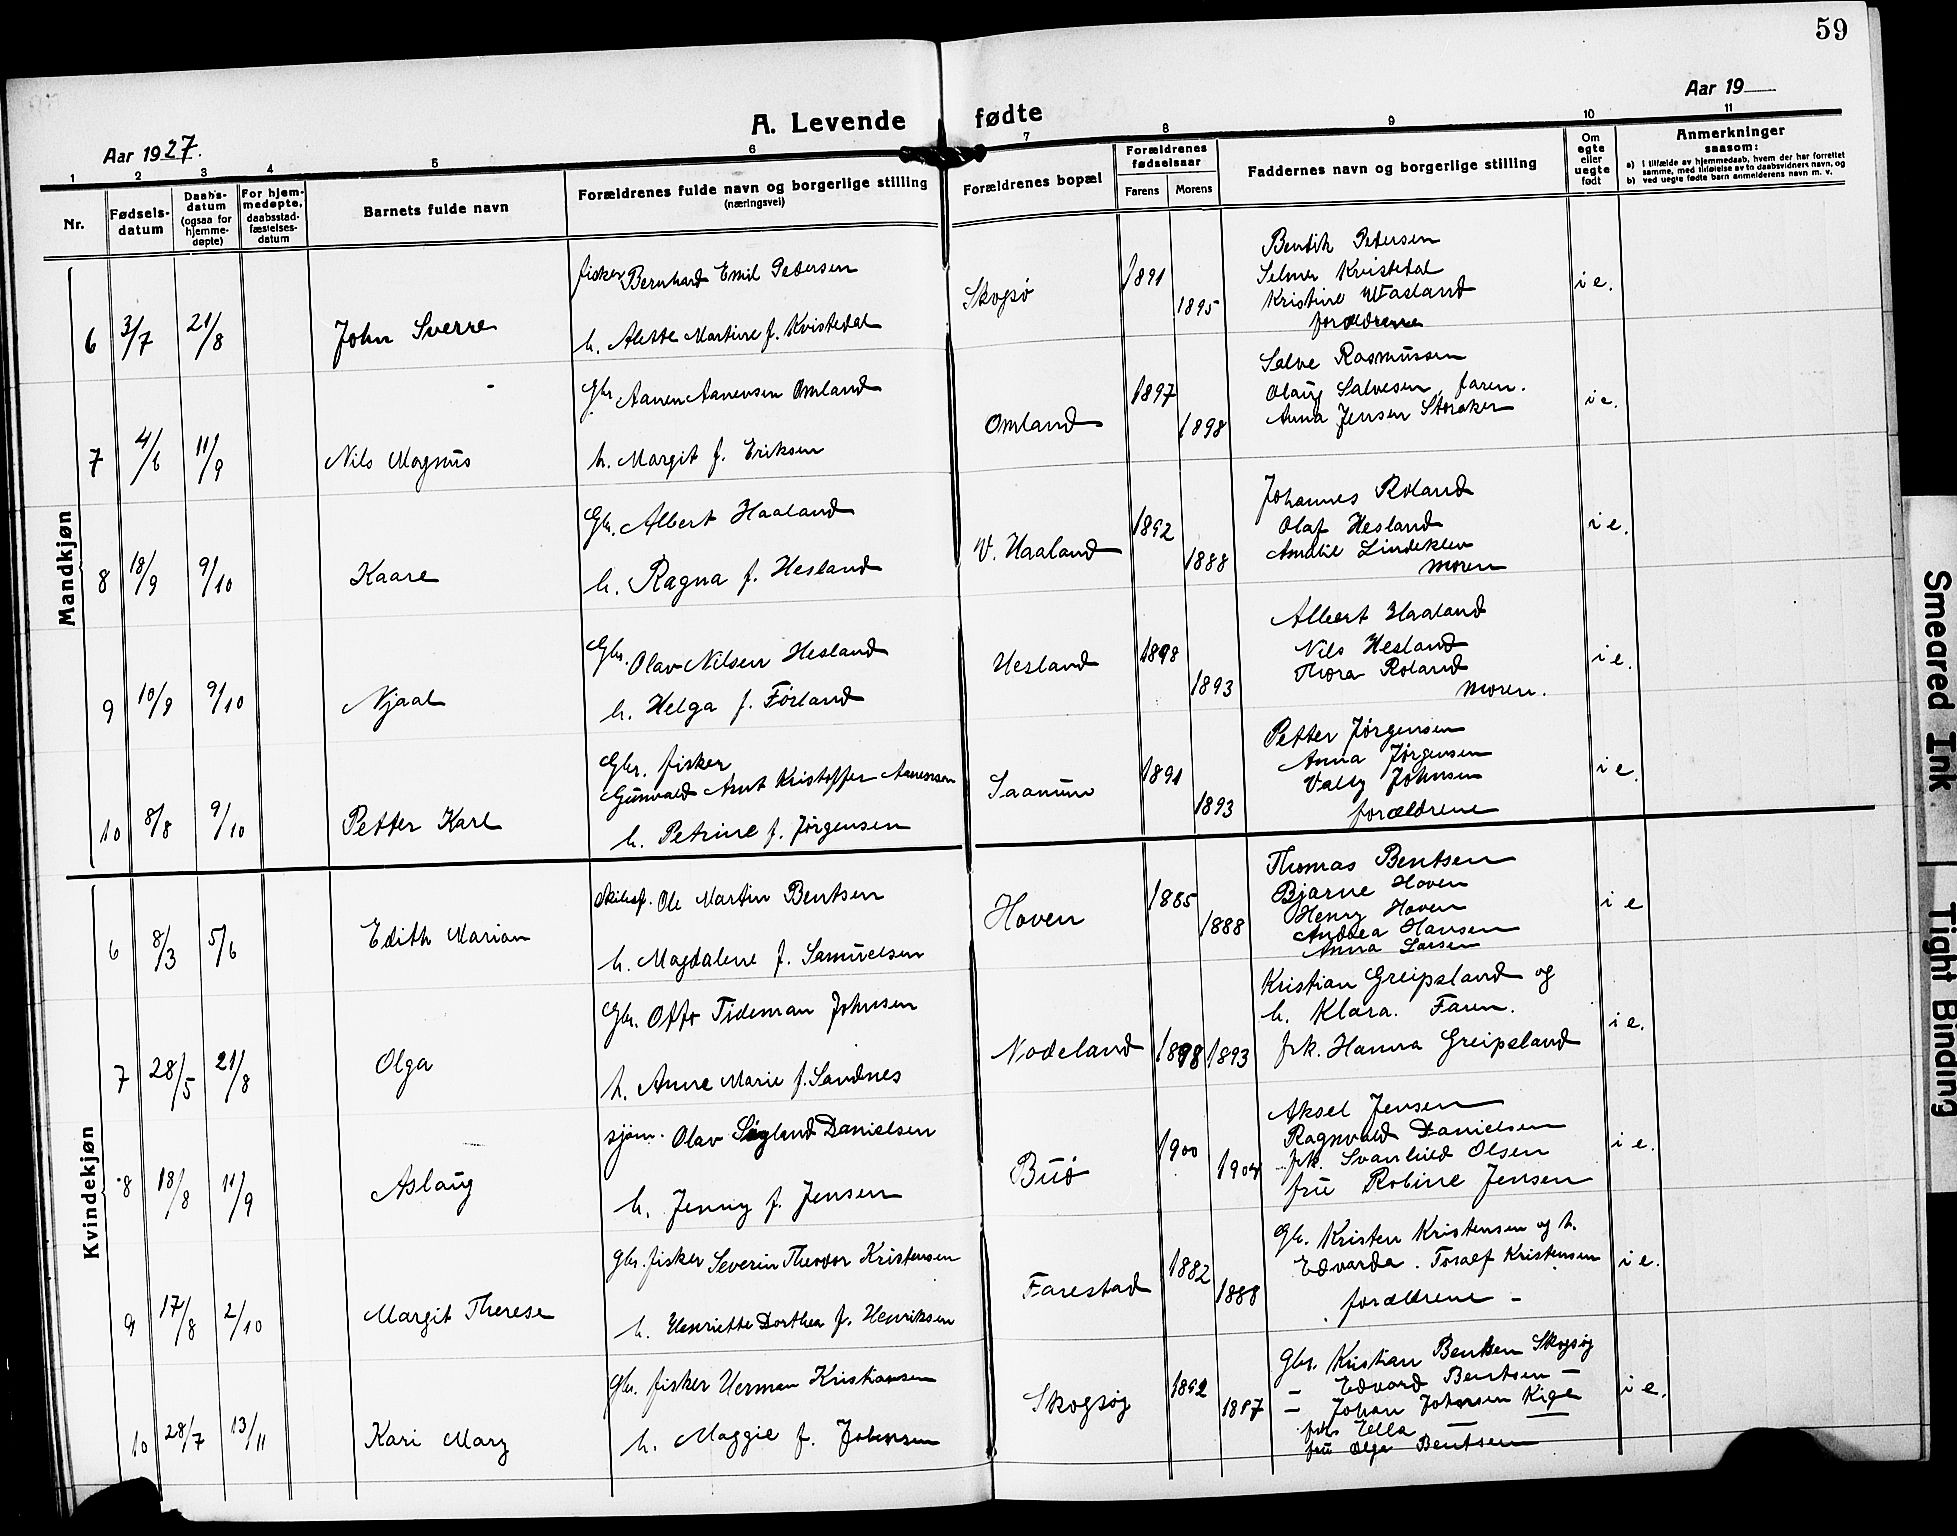 59
Aar 1927.
A. Levende fødte
Aar 19
1 2 3 4 5 6 7 8 9 10 11
Nr.
Fødsels-
datum
Daabs-
datum
(ogsaa for
hjemme-
døpte)
For hjem-
medøpte,
daabsstad-
fæstelses-
datum
Barnets fulde navn
Forældrenes fulde navn og borgerlige stilling
(næringsvei)
Forældrenes bopæl
Forældrenes
fødselsaar
Farens Morens
Faddernes navn og borgerlige stilling
Om
egte
eller
uegte
født
Anmerkninger
saasom:
a) i tilfælde av hjemmedaab, hvem der har forrettet
samme, med tilføielse av to daabsvidners navn, og
b) ved uegte fødte barn anmelderens navn m. v.
Mandkjøn
6 3/7 21/8 John Sverre
fisker Bernhard Emil Pedersen
h. Alette Martine f. Kvistedal
Skogsø 1891 1895
Bentik Petersen
Selmer Kvistedal
Kristine
forældrene
i e.
7 4/6 11/9 Nils Magnus
Gbr Aanen Aanensen Omland
h. Margit f. Eriksen
Omland 1897 1898
Salve Rasmussen
Olaug Salvesen, faren.
Anna Jensen Storaker
i e.
8 18/9 9/10 Kaare
Gbr. Albert Haaland
h. Ragna f. Hesland
V. Haaland 1892 1888
Johannes Roland
Olaf Hesland
Amalie Lindeklev
moren
i e.
9 10/9 9/10 Njaal
Gbr. Olav Nilsen Hesland
h. Helga f. Førland
Hesland 1898 1893
Albert Haaland
Nils Hesland
Thora Roland
moren.
i e.
10 8/8 9/10 Petter Karl
Gbr. fisker
Gunvald Arnt Kristoffer Aanensen
h. Petrine f. Jørgensen
Saanum 1891 1893
Petter Jørgensen
Anna Jørgensen
Valby Johnsen
forældrene
i e.
Kvindekjøn
6 8/3 5/6 Edith Marian
Skibsf. Ole Martin Bentsen
h. Magdalene f. Samuelsen
Hoven 1885 1888
Thomas Bentsen
Bjarne Hoven
Henry Hoven
Andrea Hansen
Anna Larsen
i e
7 28/5 21/8 Olga
Gbr. Otto Tideman Johnsen
h. Anne Marie f. Sandnes
Nodeland 1898 1893
Kristian Greipsland og
h. Klara. Faren.
frk. Hanna Greipsland
i e.
8 18/8 11/9 Aslaug
sjøm. Olav Søgland Danielsen
h. Jenny f. Jensen
Buø 1900 1904
Aksel Jensen
Ragnvald Danielsen
frk. Svanhild Olsen
fru Robine Jensen
i e.
9 17/8 2/10 Margit Therese
gbr. fisker Severin Theodor Kristensen
h. Henriette Dorthea f. Henriksen
Farestad 1882 1888
Gb. Kristen Kristensen og h.
Edvarda. Toralf Kristensen
forældrene –
i e.
10 28/7 13/11 Kari Mary
Gbr. fisker Herman Kristiansen
h. Maggie f. Johnsen
Skogsøy 1892 1887
Gbr. Kristian Bentsen Skogsøy
– Edvard Bentsen –
– Johan Johnsen Kige
frk. Ella
fru Olga Bentsen
i e.
Smeared Ink
Tight Binding